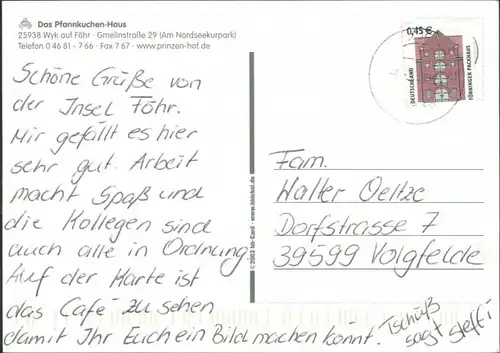 Das Pfannkuchen-Haus
25938 Wyk auf Föhr Gmelinstraße 29 (Am Nordseekurpark)
Telefon 0 46 81 - 7 66 · Fax 7 67 · www.prinzen-hof.de
Schöne Grüße von
der Insel Föhr.
Mir gefällt es hier
sehr gut. Arbeit
macht Spaß und
die Kollegen sind
auch alle in Ordnung.
Auf der Karte ist
das Café zu sehen
damit Ihr Euch ein Bild machen könnt.
Tschüß
sagt Steffi
© 2003 hb-Card · www.klocksi.de
0,45 €
DEUTSCHLAND
TÖNNINGER PACKHAUS
Fam.
Walter Oeltze
Dorfstrasse 7
39599 Volgfelde